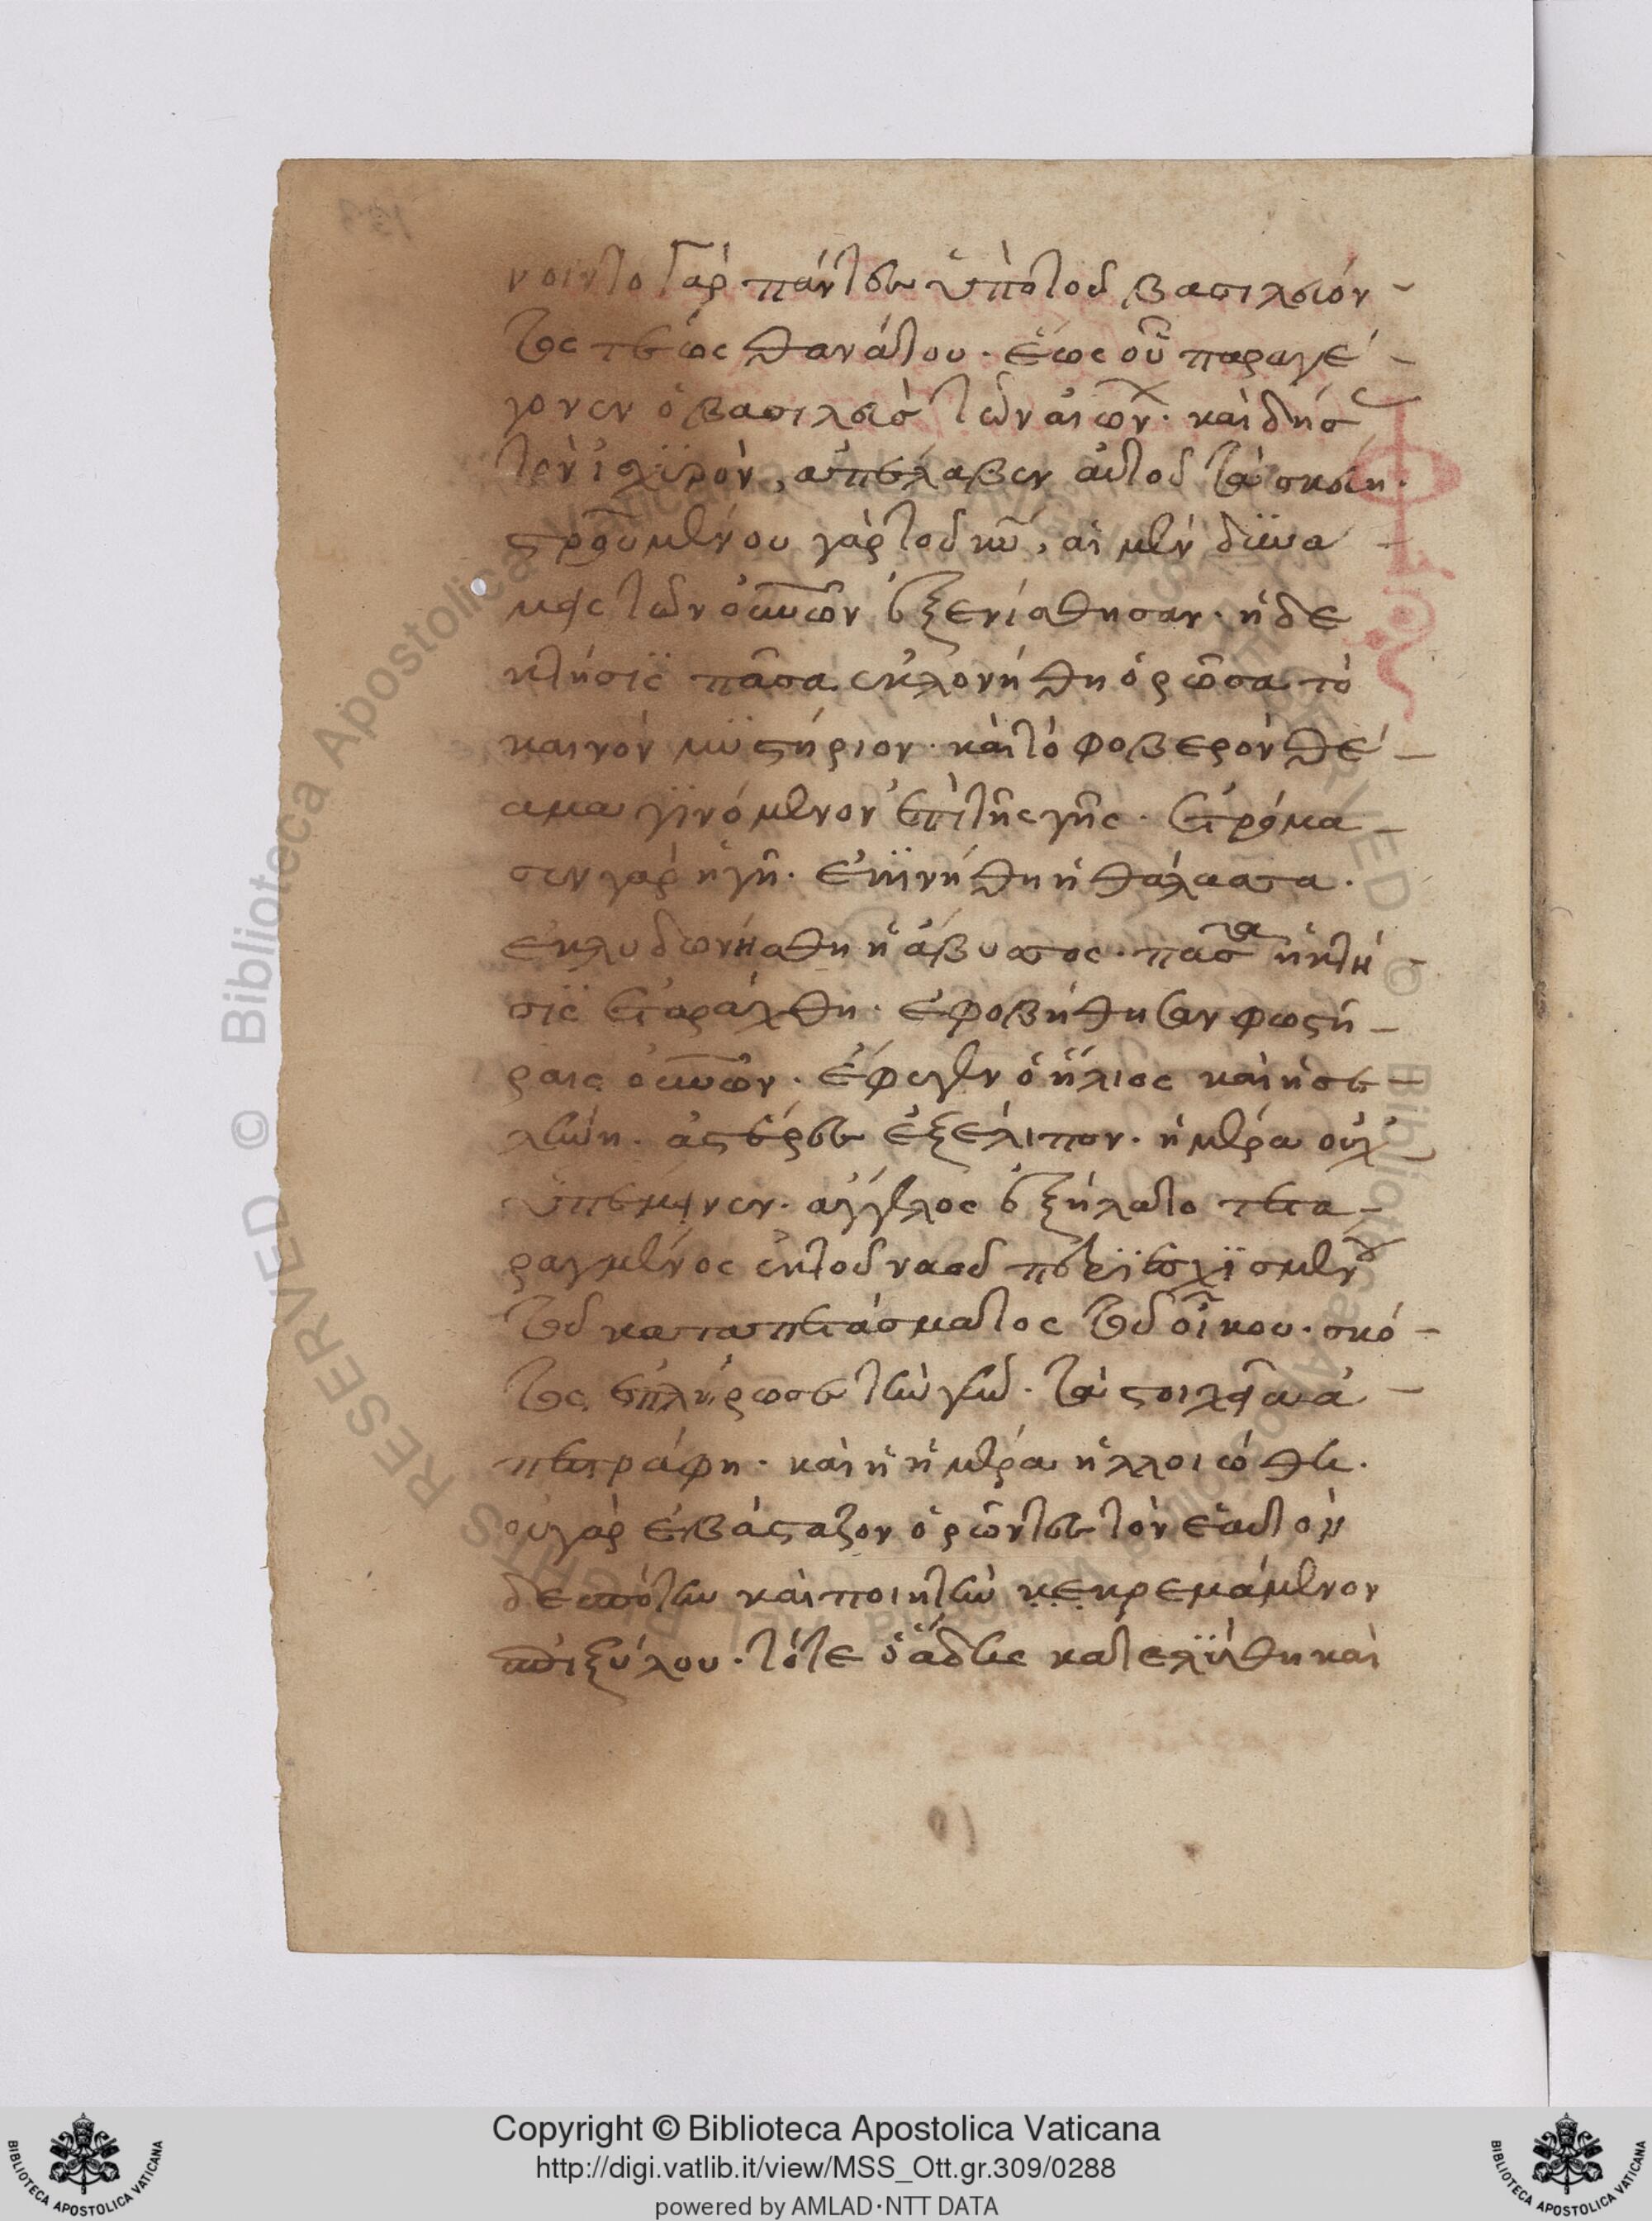 νοιντο γὰρ πάντες ὑπὸ τοῦ βασιλεύον-
τος τέως θανάτου. ἕως οὗ παραγέ-
γονεν ὁ βασιλεὺσ τῶν αἰών. καὶ δήσ
τὸν ἰσχϋρὸν, ἀπέλαβεν αὐτοῦ τὰ σκεύη.
στρουμένου γὰρ τοῦ κῦ, αἱ μὲν δϋνα-
μεις τῶν οὐνῶν ἐξενίσθησαν. ἡ δε
κτήσϊς πᾶσα ἐκλονήθη ὁρῶσα τὸ
καινὸν μϋστήριον. καὶ τὸ φοβερὸν θέ-
αμα γϊνόμενον ἐπὶ τῆς γῆς. ἐτρόμα-
σεν γὰρ ἡ γῆ. ἐκϊνήθη ἡ θάλασσα.
ἐκλυδωνήσθη ἡ ἄβυσσος. πᾶσα ἡ κτή-
σϊς ἐταράχθη. ἐφοβήθησαν φωστή-
ραις οὐνῶν. ἔφυγεν ὁ ἥλιος καὶ ἡ σε-
λήνη. ἀστέρες ἐξέλιπον. ἡμέρα οὐχ
ὑπέμεινεν. ἄγγελος ἐξήλατο τετα-
ραγμένος ἐκ τοῦ ναοῦ περϊεσχϊσμένου
τοῦ καταπετάσματος τοῦ οἴκου. σκό-
τος ἐπλήρωσε τὴν γῆν. τὰ στοιχεῖα ἀ-
πετράφη. καὶ ἡ ἡμέρα ἠλλοιώθη.
οὐ γὰρ ἐβάσταζον ὁρῶντες τὸν ἑαυτὸν
δεσπότην καὶ ποιητὴν κεκρεμάμενον
ἐπὶ ξύλου. τότε ὁ ἅδης κατελΰθη καὶ